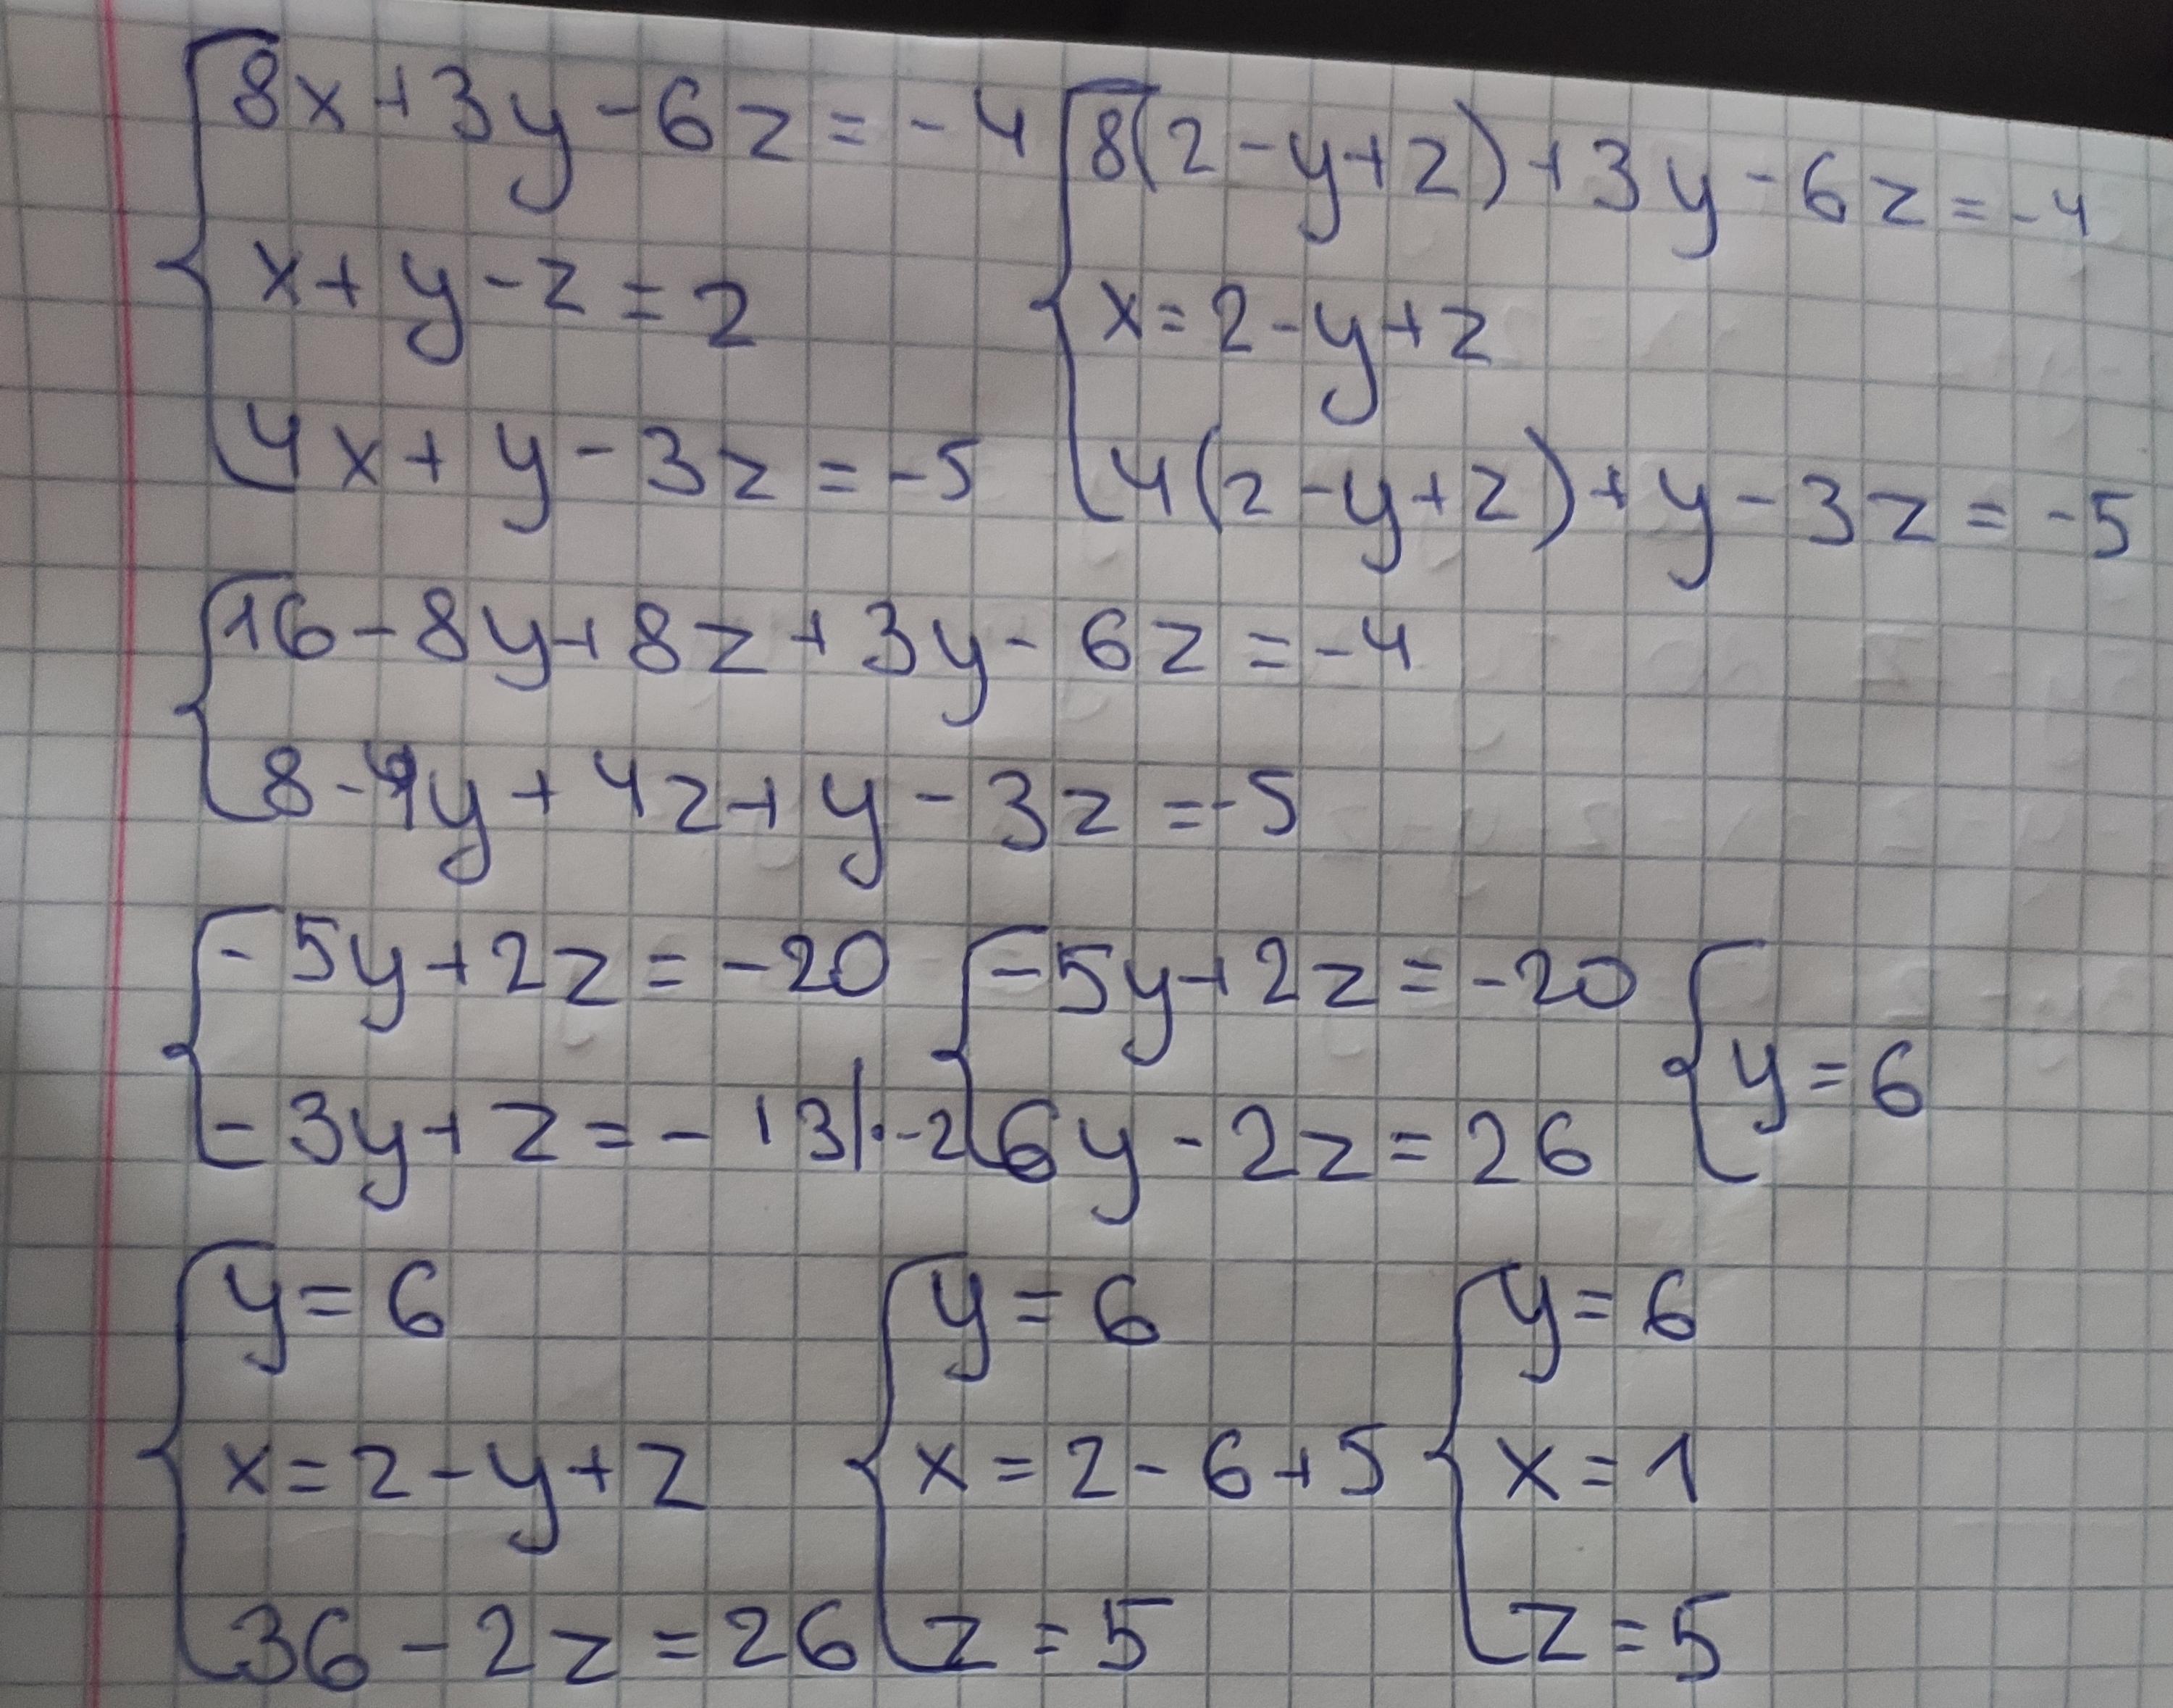 8x+3y-6z=-4
x+y-z=2
4x+y-3z=-5
8(2-y+z)+3y-6z=-4
x=2-y+z
4(2-y+z)+y-3z=-5
16-8y+8z+3y-6z=-4
8-4y+4z+y-3z=-5
-5y+2z=-20
-3y+z=-13|·-2
-5y+2z=-20
6y-2z=26
y=6
y=6
x=2-y+z
36-2z=26
y=6
x=2-6+5
z=5
y=6
x=1
z=5